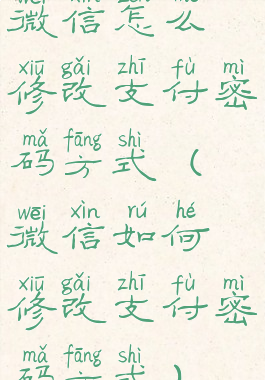 wēi xìn zěn me
微信怎么
xiū gǎi zhī fù mì
修改支付密
mǎ fāng shì
码方式（
wēi xìn rú hé
微信如何
xiū gǎi zhī fù mì
修改支付密
mǎ fāng shì
码方式）